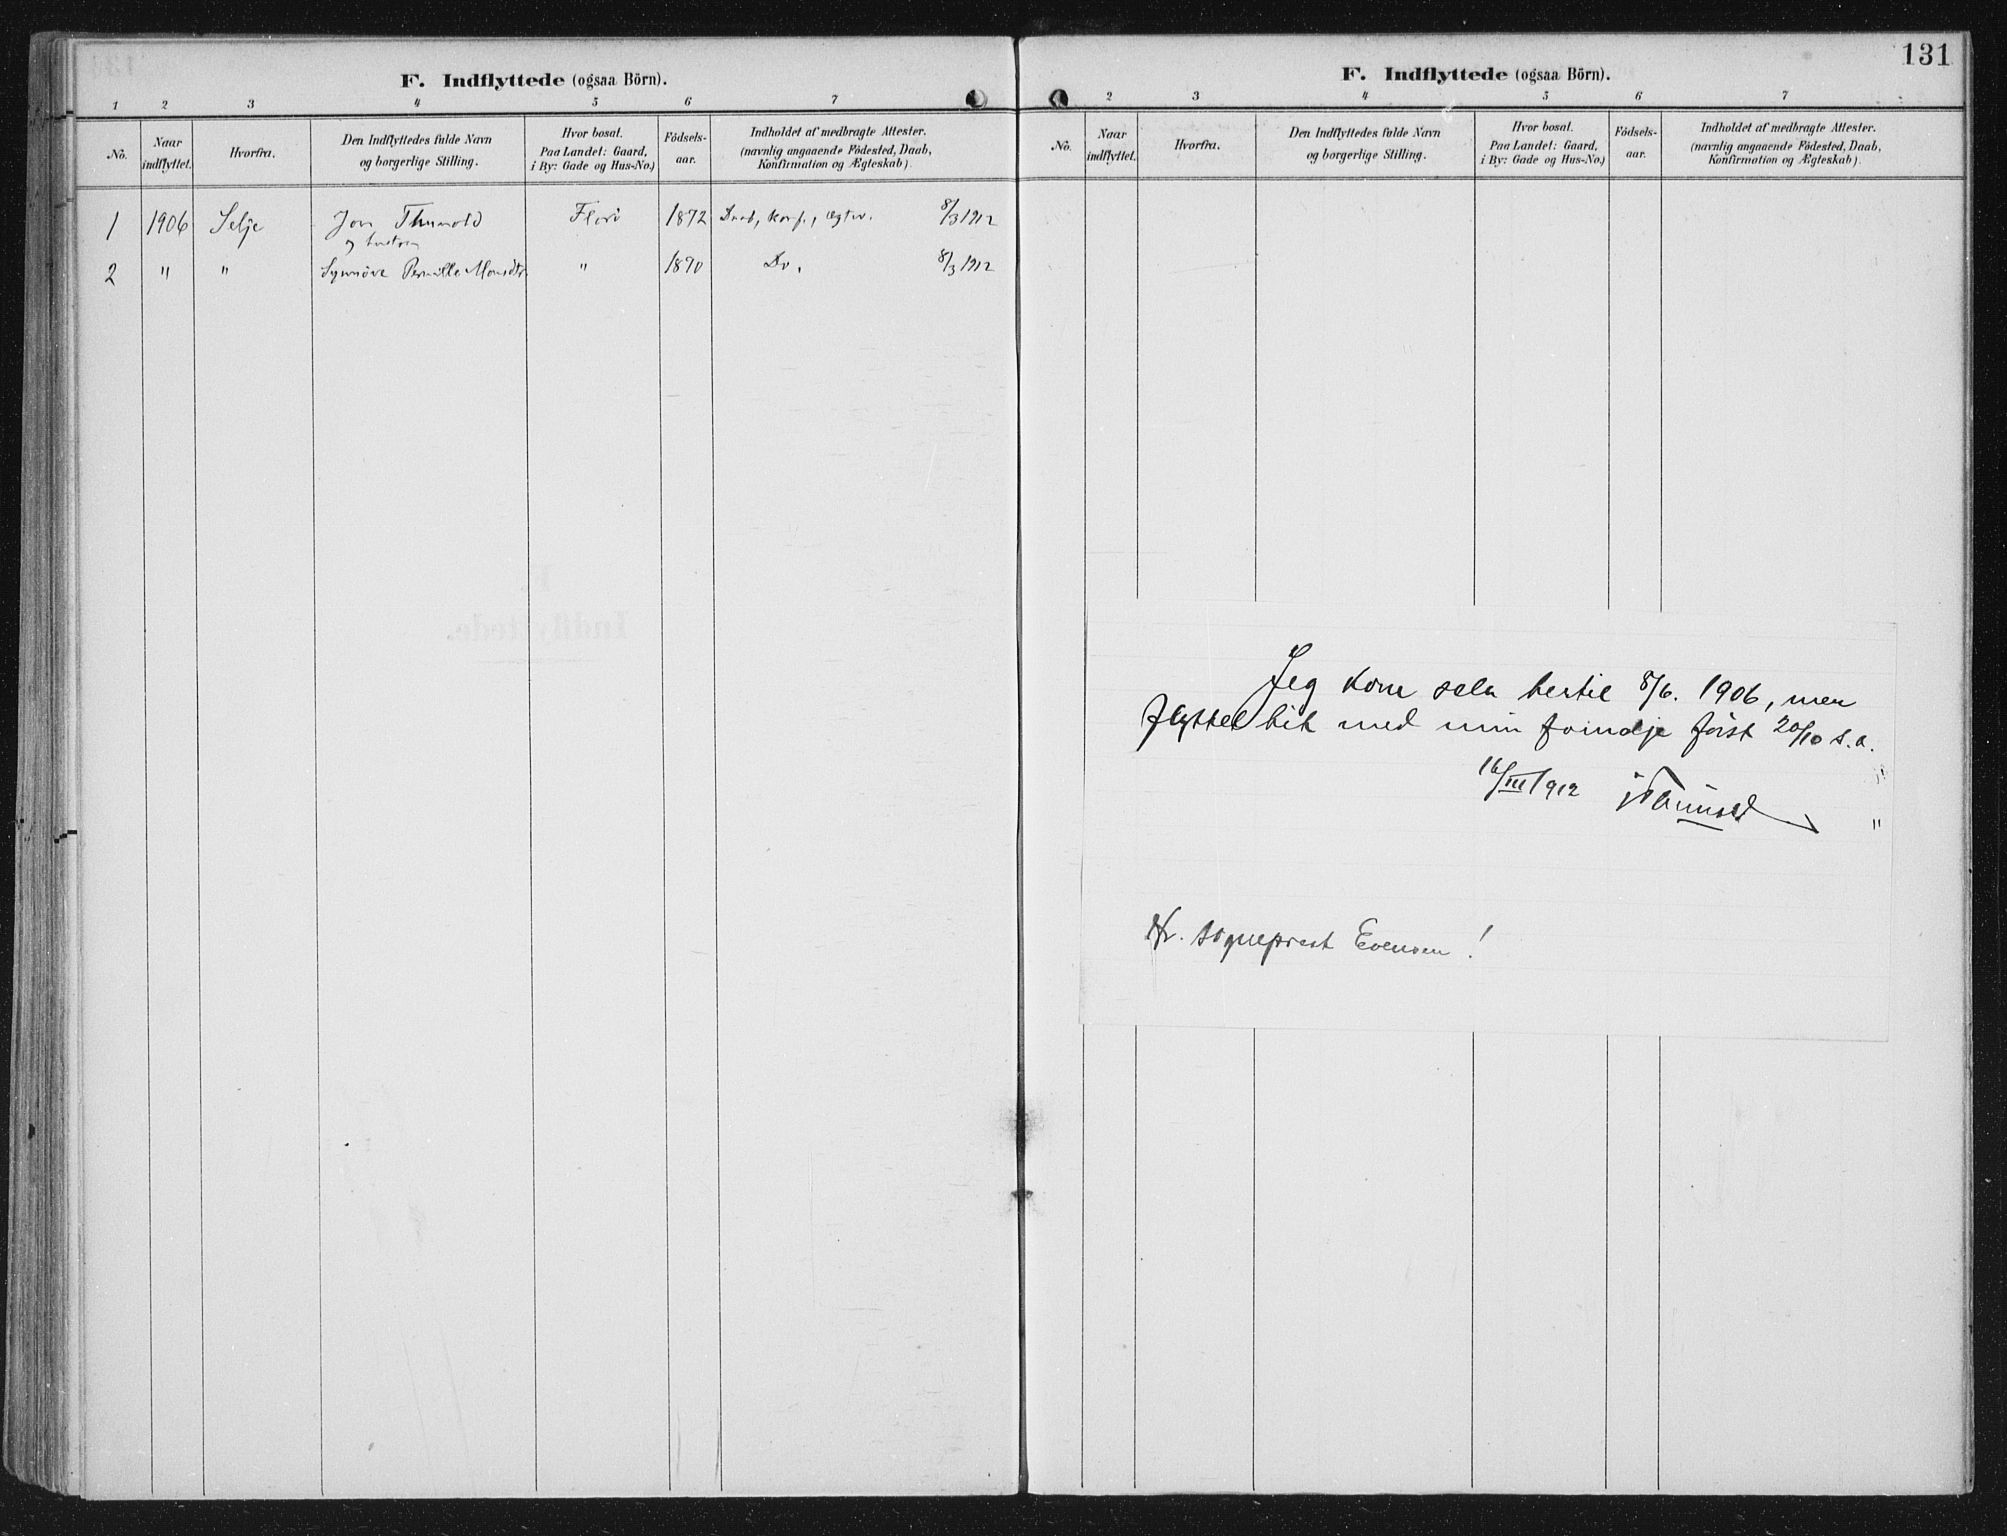 F. Indflyttede (ogsaa Börn).
1 2 3 4 5 6 7
No. Naar indflyttet. Hvorfra. Den Indflyttedes fulde Navn og borgerlige Stilling. Hvor bosat. Paa Landet: Gaard, i By: Gade og Hus-No.) Födsels-aar. Indholdet af medbragte Attester. (navnlig angaaende Födested, Daab, Konfirmation og Ægteskab).
1 1906 Selje Jon Thunold Florö 1872 Daab, konf., 8/3 1912
og hustru
2 " " Synnöve Pernille Monsdtr " 1870 Do. 8/3 1912
131
F. Indflyttede (ogsaa Börn).
2 3 4 5 6 7
No. Naar indflyttet. Hvorfra. Den Indflyttedes fulde Navn og borgerlige Stilling. Hvor bosat. Paa Landet: Gaard, i By: Gade og Hus-No.) Födsels-aar. Indholdet af medbragte Attester. (navnlig angaaende Födested, Daab, Konfirmation og Ægteskab).
Jeg kom selv hertil 8/6. 1906, men
flyttet hit med min først 20/10 s.a.
16/III 1912 J Thunold
"
Hr. sogneprest Evensen!